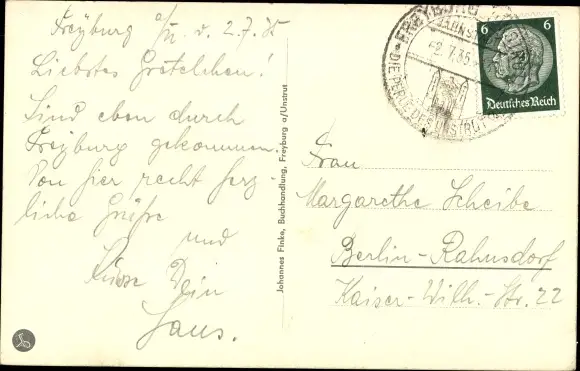 Freyburg a/U. d. 2.7.35
Liebstes Gretelchen!
Sind eben durch
Freyburg gekommen.
Von hier recht herz-
liche Grüße
und
Küsse Dein
Hans.
Johannes Finke, Buchhandlung, Freyburg a/Unstrut
FREYBURG
(UNSTRUT)
2.7.35
DIE PERLE DES UNSTRUT
6 6
Deutsches Reich
Frau
Margarethe Scheibe
Berlin-Rahnsdorf
Kaiser-Wilh.-Str. 22